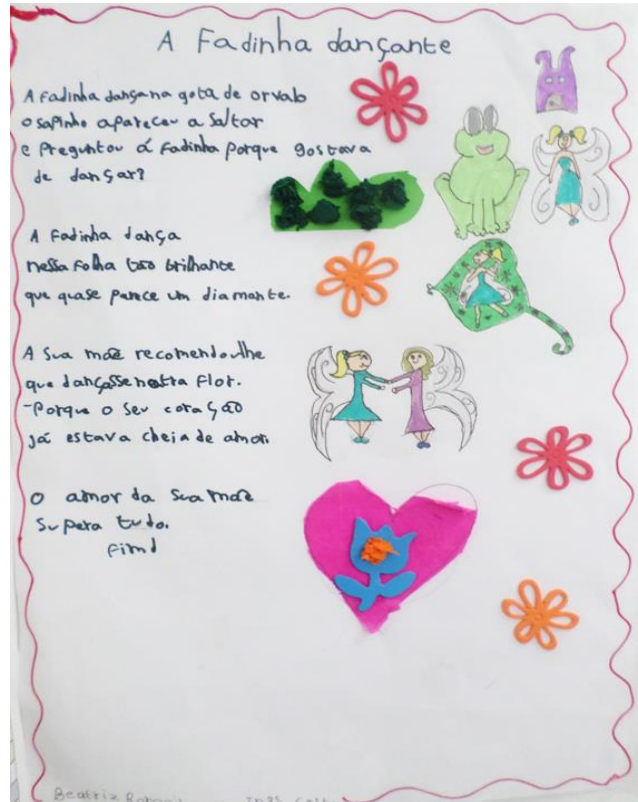 A Fadinha dançante
A Fadinha dança na gota de orvalo
o sapinho apareceu a saltar
e Preguntou á Fadinha porque gostava
de dançar?
A Fadinha dança
nessa folha tão brilhante
que quase parece um diamante.
A Sua mãe recomendoulhe
que dançasse noutra Flor.
-Porque o Seu coração
já estava cheia de amor.
O amor da Sua mãe
Supera tudo.
Fim!
Beatriz